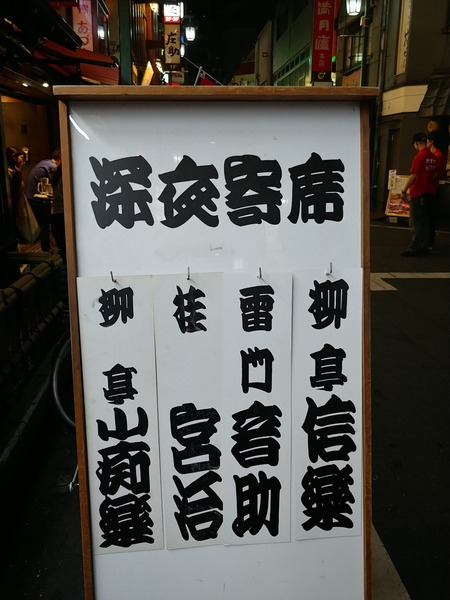 深夜寄席
柳亭信樂
雷門音助
桂宮治
柳亭小痴樂
庄助